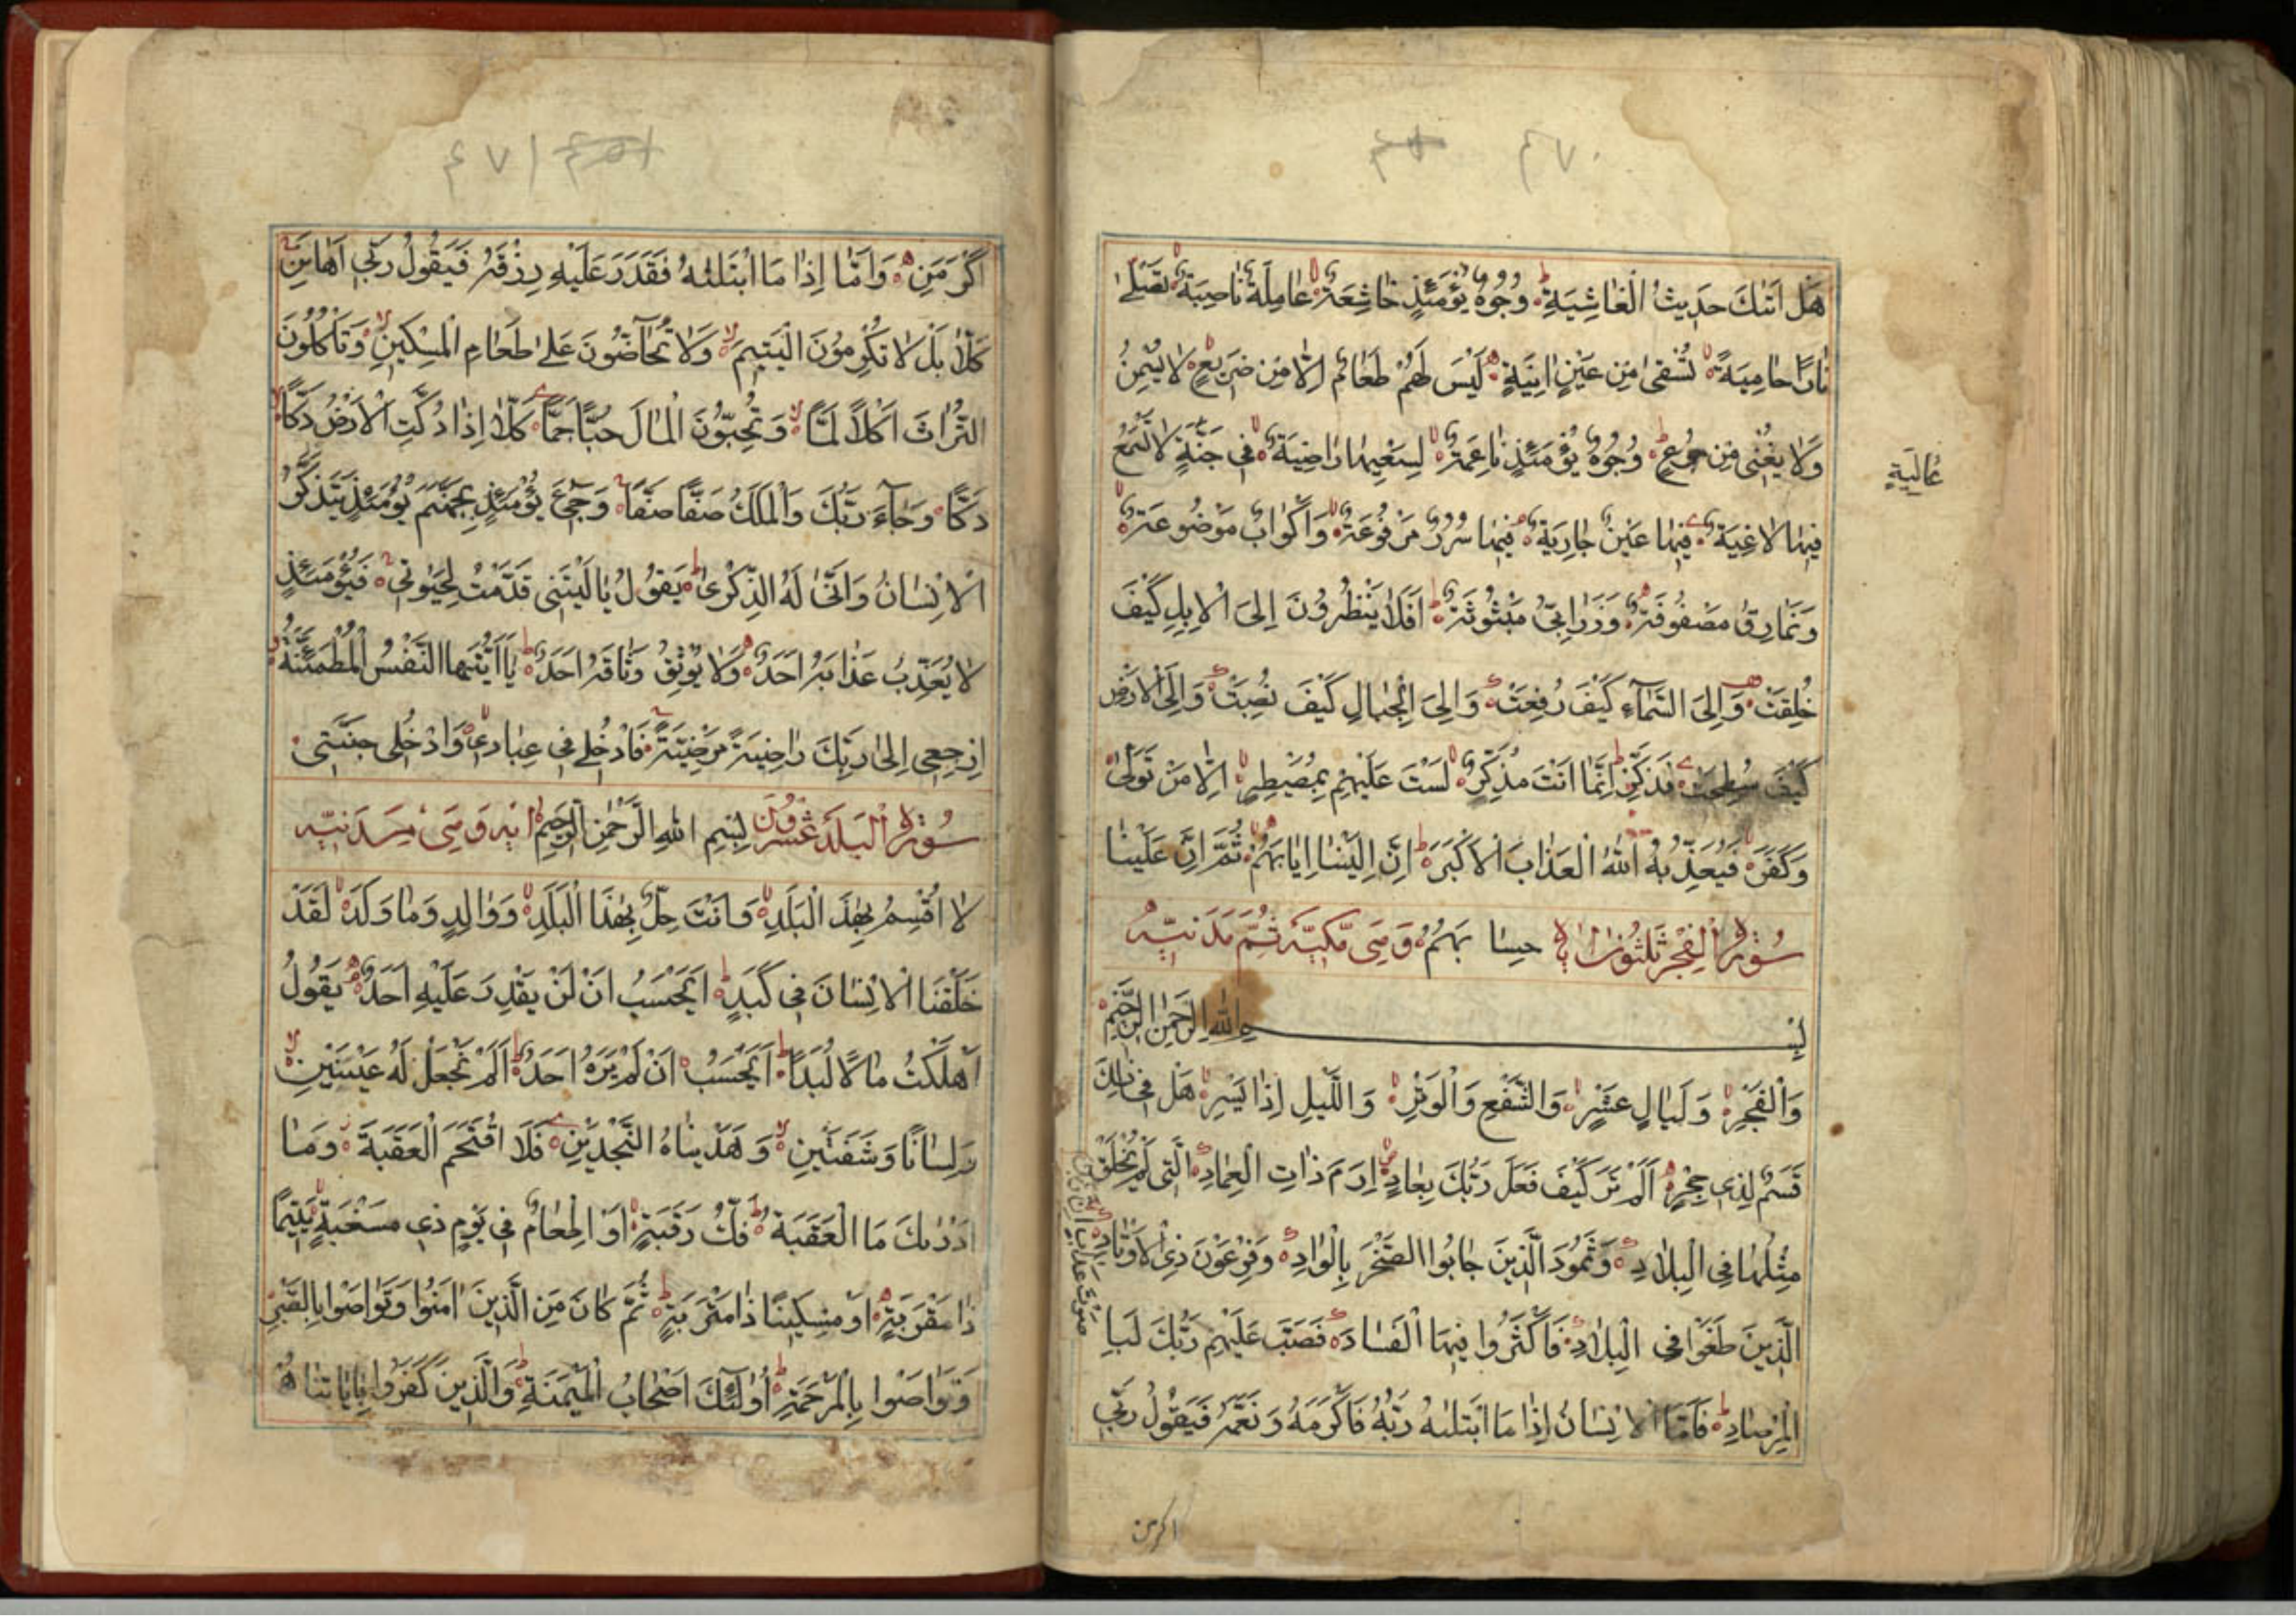 ٤٧٠
هَلْ اَتٰىكَ حَدِيثُ الْغَاشِيَةِ وُجُوهٌ يَوْمَئِذٍ خَاشِعَةٌ عَامِلَةٌ نَاصِبَةٌ تَصْلٰى
نَارًا حَامِيَةً تُسْقٰى مِنْ عَيْنٍ اٰنِيَةٍ لَيْسَ لَهُمْ طَعَامٌ اِلَّا مِنْ ضَرِيعٍ لَا يُسْمِنُ
وَلَا يُغْنِى مِنْ جُوعٍ وُجُوهٌ يَوْمَئِذٍ نَاعِمَةٌ لِسَعْيِهَا رَاضِيَةٌ فِى جَنَّةٍ لَا تَسْمَعُ
عَالِيَةٍ
فِيهَا لَاغِيَةً فِيهَا عَيْنٌ جَارِيَةٌ فِيهَا سُرُرٌ مَرْفُوعَةٌ وَاَكْوَابٌ مَوْضُوعَةٌ
وَنَمَارِقُ مَصْفُوفَةٌ وَزَرَابِىُّ مَبْثُوثَةٌ اَفَلَا يَنْظُرُونَ اِلَى الْاِبِلِ كَيْفَ
خُلِقَتْ وَاِلَى السَّمَآءِ كَيْفَ رُفِعَتْ وَاِلَى الْجِبَالِ كَيْفَ نُصِبَتْ وَاِلَى الْاَرْضِ
كَيْفَ سُطِحَتْ فَذَكِّرْ اِنَّمَا اَنْتَ مُذَكِّرٌ لَسْتَ عَلَيْهِمْ بِمُصَيْطِرٍ اِلَّا مَنْ تَوَلّٰى
وَكَفَرَ فَيُعَذِّبُهُ اللّٰهُ الْعَذَابَ الْاَكْبَرَ اِنَّ اِلَيْنَا اِيَابَهُمْ ثُمَّ اِنَّ عَلَيْنَا
سُورَةُ الْفَجْرِ ثَلٰثُونَ اٰيَة حِسَابَهُمْ وَهِىَ مَكِّيَّة ثُمَّ مَدَنِيَّة
بِسْمِ اللّٰهِ الرَّحْمٰنِ الرَّحِيمِ
وَالْفَجْرِ وَلَيَالٍ عَشْرٍ وَالشَّفْعِ وَالْوَتْرِ وَالَّيْلِ اِذَا يَسْرِ هَلْ فِى ذٰلِكَ
قَسَمٌ لِذِى حِجْرٍ اَلَمْ تَرَ كَيْفَ فَعَلَ رَبُّكَ بِعَادٍ اِرَمَ ذَاتِ الْعِمَادِ الَّتِى لَمْ يُخْلَقْ
مِثْلُهَا فِى الْبِلَادِ وَثَمُودَ الَّذِينَ جَابُوا الصَّخْرَ بِالْوَادِ وَفِرْعَوْنَ ذِى الْاَوْتَادِ
الَّذِينَ طَغَوْا فِى الْبِلَادِ فَاَكْثَرُوا فِيهَا الْفَسَادَ فَصَبَّ عَلَيْهِمْ رَبُّكَ لَبِا
سَوْطَ عَذَابٍ اِنَّ رَبَّكَ
لْمِرْصَادِ فَاَمَّا الْاِنْسَانُ اِذَا مَا ابْتَلٰىهُ رَبُّهُ فَاَكْرَمَهُ وَنَعَّمَهُ فَيَقُولُ رَبِّى
اكرمن
٤٧١
اَكْرَمَنِ وَاَمَّا اِذَا مَا ابْتَلٰىهُ فَقَدَرَ عَلَيْهِ رِزْقَهُ فَيَقُولُ رَبِّى اَهَانَنِ
كَلَّا بَلْ لَا تُكْرِمُونَ الْيَتِيمَ وَلَا تَحَآضُّونَ عَلٰى طَعَامِ الْمِسْكِينِ وَتَأْكُلُونَ
التُّرَاثَ اَكْلًا لَمًّا وَتُحِبُّونَ الْمَالَ حُبًّا جَمًّا كَلَّا اِذَا دُكَّتِ الْاَرْضُ دَكًّا
دَكًّا وَجَآءَ رَبُّكَ وَالْمَلَكُ صَفًّا صَفًّا وَجِىءَ يَوْمَئِذٍ بِجَهَنَّمَ يَوْمَئِذٍ يَتَذَكَّرُ
الْاِنْسَانُ وَاَنّٰى لَهُ الذِّكْرٰى يَقُولُ يَا لَيْتَنِى قَدَّمْتُ لِحَيٰوتِى فَيَوْمَئِذٍ
لَا يُعَذِّبُ عَذَابَهُ اَحَدٌ وَلَا يُوثِقُ وَثَاقَهُ اَحَدٌ يَا اَيَّتُهَا النَّفْسُ الْمُطْمَئِنَّةُ
ارْجِعِى اِلٰى رَبِّكِ رَاضِيَةً مَرْضِيَّةً فَادْخُلِى فِى عِبَادِى وَادْخُلِى جَنَّتِى
سُورَةُ الْبَلَدِ عِشْرُونَ بِسْمِ اللّٰهِ الرَّحْمٰنِ الرَّحِيمِ اٰيَة وَهِىَ مَدَنِيَّة
لَا اُقْسِمُ بِهٰذَ الْبَلَدِ وَاَنْتَ حِلٌّ بِهٰذَا الْبَلَدِ وَوَالِدٍ وَمَا وَلَدَ لَقَدْ
خَلَقْنَا الْاِنْسَانَ فِى كَبَدٍ اَيَحْسَبُ اَنْ لَنْ يَقْدِرَ عَلَيْهِ اَحَدٌ يَقُولُ
اَهْلَكْتُ مَالًا لُبَدًا اَيَحْسَبُ اَنْ لَمْ يَرَهُ اَحَدٌ اَلَمْ نَجْعَلْ لَهُ عَيْنَيْنِ
وَلِسَانًا وَشَفَتَيْنِ وَهَدَيْنَاهُ النَّجْدَيْنِ فَلَا اقْتَحَمَ الْعَقَبَةَ وَمَا
اَدْرٰىكَ مَا الْعَقَبَةُ فَكُّ رَقَبَةٍ اَوْ اِطْعَامٌ فِى يَوْمٍ ذِى مَسْغَبَةٍ يَتِيمًا
ذَا مَقْرَبَةٍ اَوْ مِسْكِينًا ذَا مَتْرَبَةٍ ثُمَّ كَانَ مِنَ الَّذِينَ اٰمَنُوا وَتَوَاصَوْا بِالصَّبْرِ
وَتَوَاصَوْا بِالْمَرْحَمَةِ اُولٰٓئِكَ اَصْحَابُ الْمَيْمَنَةِ وَالَّذِينَ كَفَرُوا بِاٰيَاتِنَا هُمْ